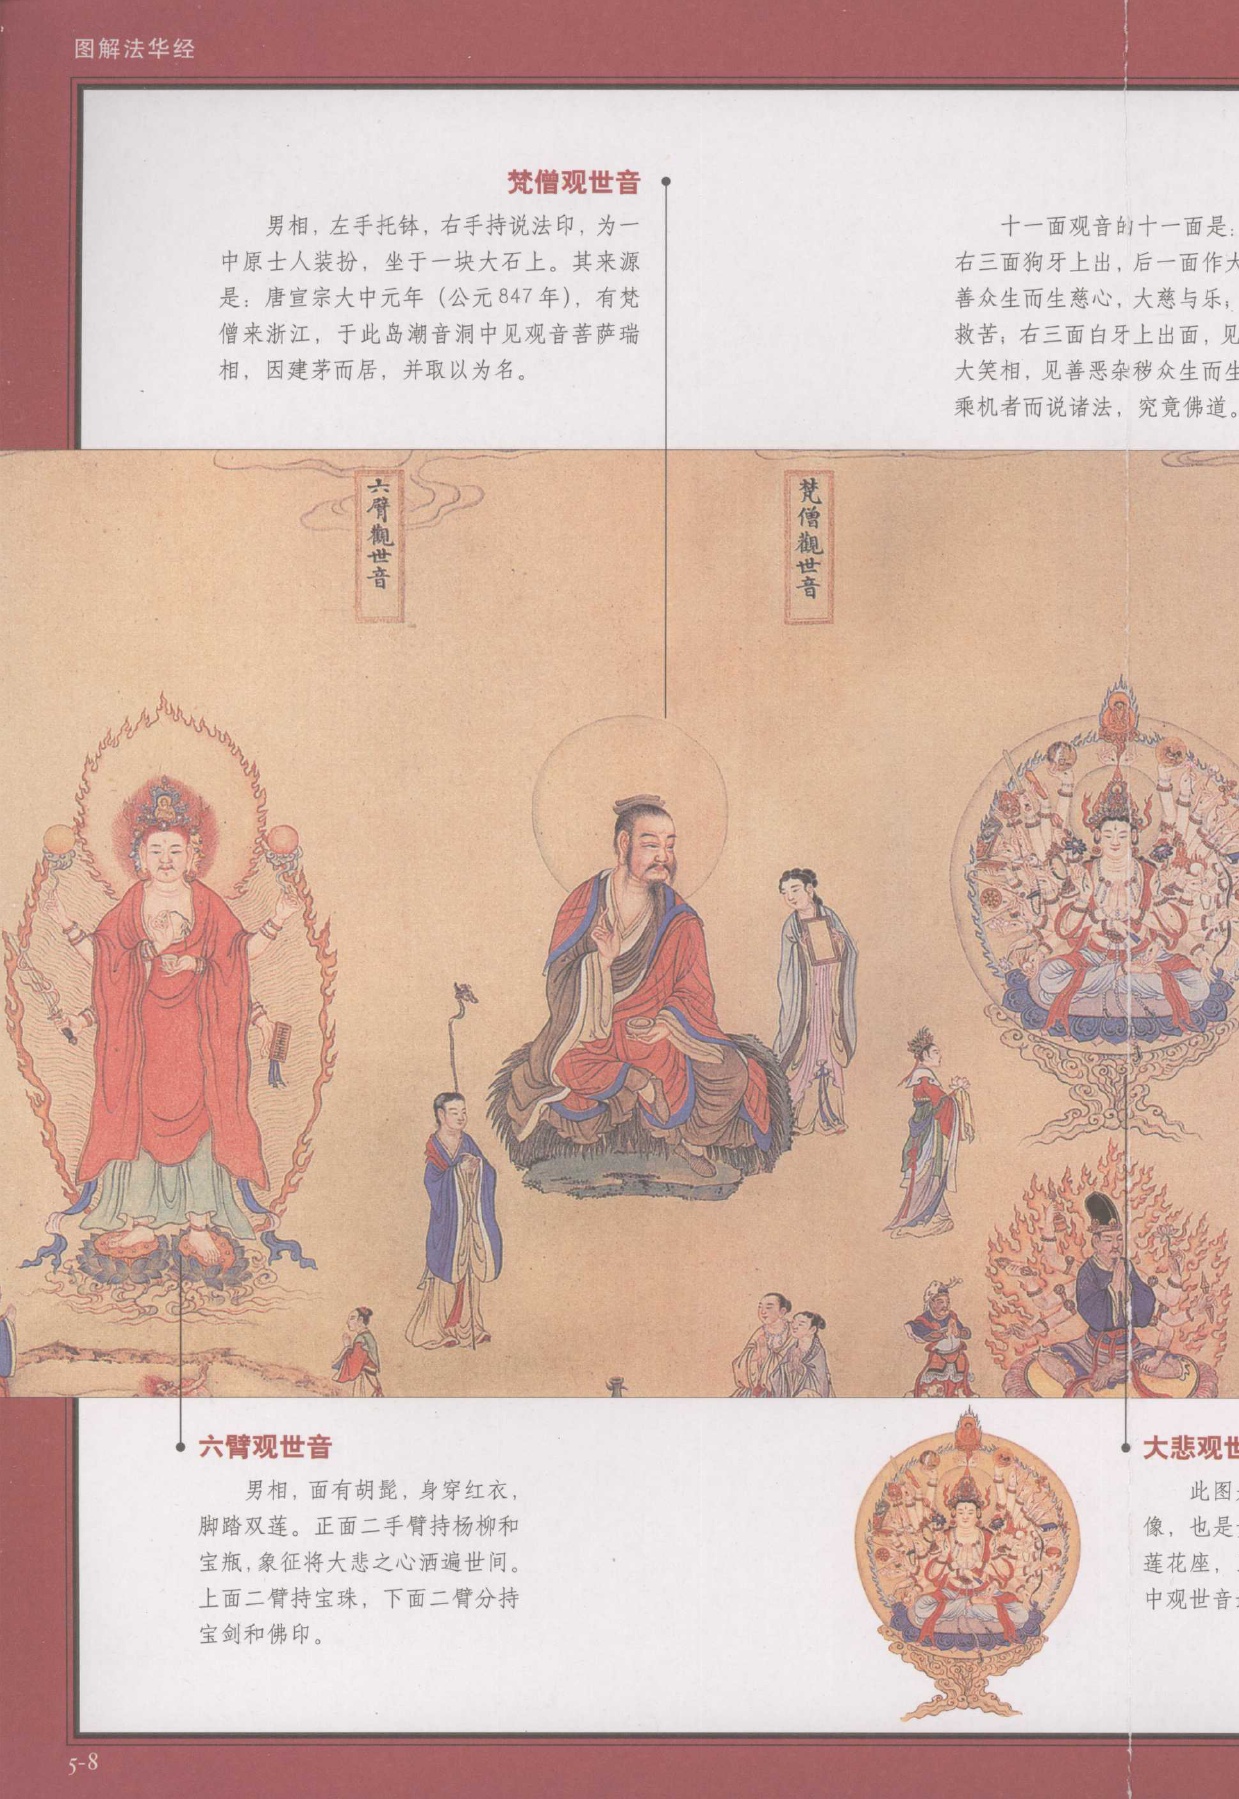 图解法华经
梵僧观世音
男相，左手托钵，右手持说法印，为一
中原士人装扮，坐于一块大石上。其来源
是：唐宣宗大中元年（公元847年），有梵
僧来浙江，于此岛潮音洞中见观音菩萨瑞
相，因建茅而居，并取以为名。
十一面观音的十一面是：
右三面狗牙上出，后一面作大
善众生而生慈心，大慈与乐；
救苦；右三面白牙上出面，见
大笑相，见善恶杂秽众生而生
乘机者而说诸法，究竟佛道。
六臂觀世音
梵僧觀世音
六臂观世音
男相，面有胡髭，身穿红衣，
脚踏双莲。正面二手臂持杨柳和
宝瓶，象征将大悲之心洒遍世间。
上面二臂持宝珠，下面二臂分持
宝剑和佛印。
大悲观世
此图
像，也是
莲花座，
中观世音
5-8